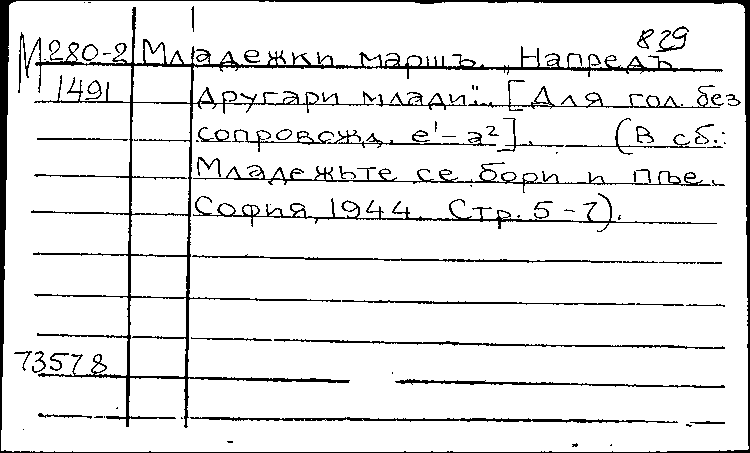 829
М 280-2 Младежки маршъ. „Напредъ
1491 другари млади"... [Для гол. без
сопровожд. e¹-a²]. (В сб.:
Младежьте се бори и пѣе.
София, 1944. Стр. 5-7).
73578